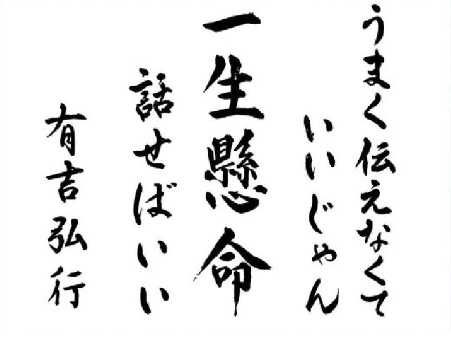 うまく伝えなくて
いいじゃん
一生懸命
話せばいい
有吉弘行